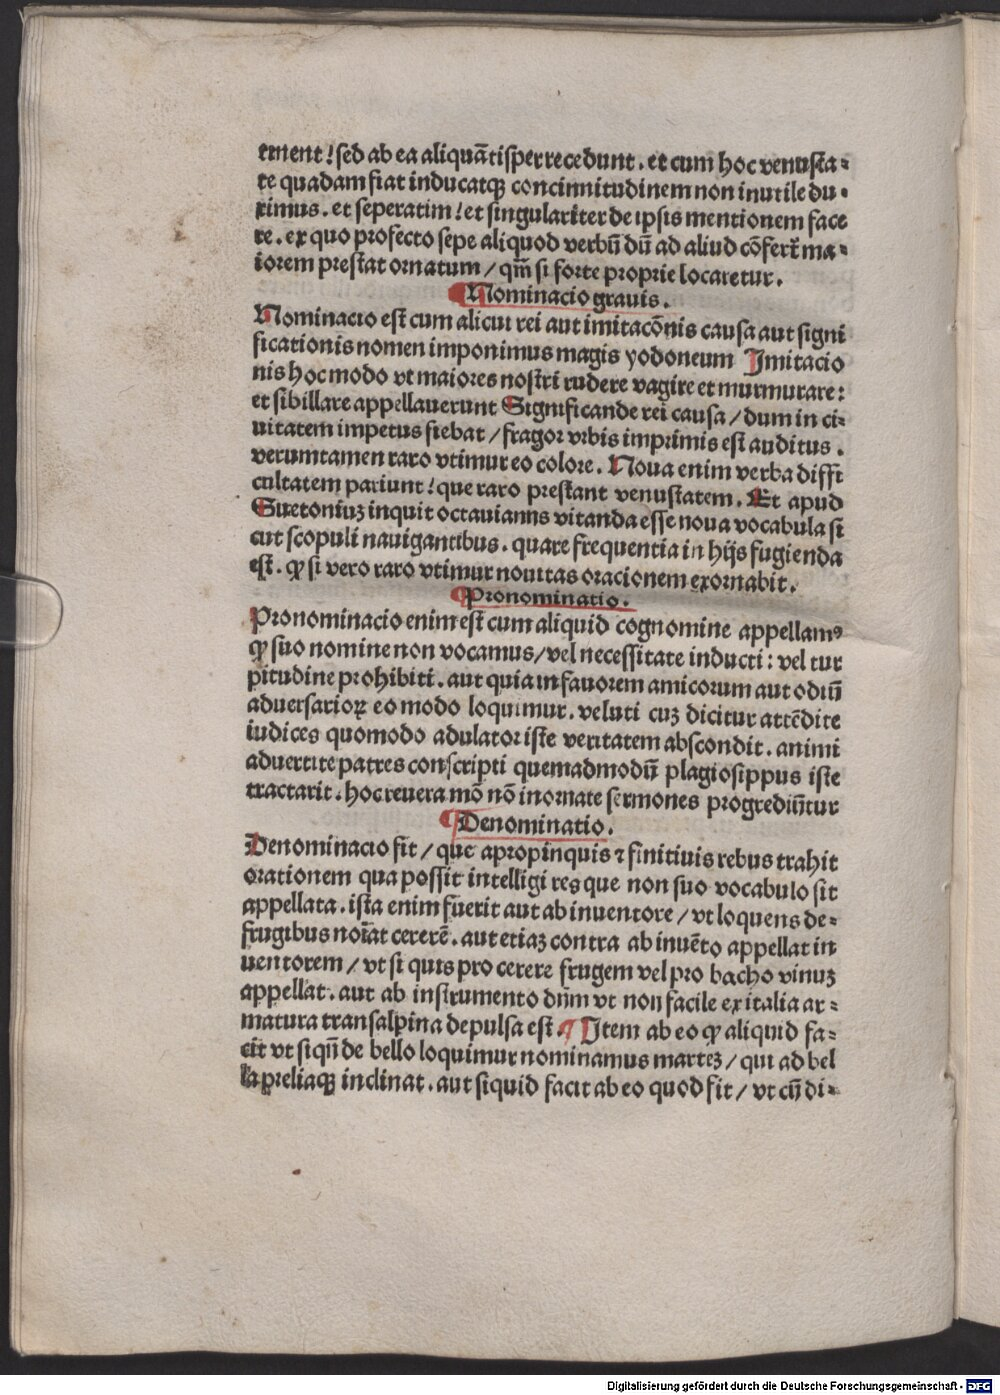 tinent! sed ab ea aliquãtisper recedunt. et cum hoc venusta-
te quadam fiat inducatqꝫ concinnitudinem non inutile du-
ximus. et seperatim! et singulariter de ipsis mentionem face
re. ex quo profecto sepe aliquod verbũ dũ ad aliud cõfert̃ ma-
iorem prestat ornatum / qm̃ si forte proprie locaretur.
¶ Nominacio grauis.
Nominacio est cum alicui rei aut imitacõnis causa aut signi
ficationis nomen imponimus magis ydoneum Imitacio
nis hoc modo vt maiores nostri rudere vagire et murmurare:
et sibillare appellauerunt Significande rei causa / dum in ci-
uitatem impetus fiebat / fragor vrbis imprimis est auditus.
verumtamen raro vtimur eo colore. Noua enim verba diffi
cultatem pariunt! que raro prestant venustatem. Et apud
Suetoniuꝫ inquit octauianns vitanda esse noua vocabula si
cut scopuli nauigantibus. quare frequentia in hijs fugienda
est. ꝙ si vero raro vtimur nouitas oracionem exornabit.
¶ Pronominatio.
Pronominacio enim est cum aliquid cognomine appellamꝰ
ꝙ suo nomine non vocamus / vel necessitate inducti: vel tur
pitudine prohibiti. aut quia in fauorem amicorum aut odiũ
aduersarioꝝ eo modo loquimur. veluti cuꝫ dicitur attẽdite
iudices quomodo adulator iste veritatem abscondit. animi
aduertite patres conscripti quemadmodũ plagiosippus iste
tractarit. hoc reuera mõ nõ inornate sermones progrediũtur
¶ Denominatio.
Denominacio fit / que apropinquis ⁊ finitiuis rebus trahit
orationem qua possit intelligi res que non suo vocabulo sit
appellata. ista enim fuerit aut ab inuentore / vt loquens de-
frugibus noĩat cererẽ. aut etiaꝫ contra ab inuẽto appellat in
uentorem / vt si quis pro cerere frugem vel pro bacho vinuꝫ
appellat. aut ab instrumento dñm vt non facile ex italia ar-
matura transalpina depulsa est. ¶ Item ab eo ꝙ aliquid fa-
cit vt siqñ de bello loquimur nominamus marteꝫ / qui ad bel
la preliaqꝫ inclinat. aut siquid facit ab eo quod fit / vt cũ di-
Digitalisierung gefördert durch die Deutsche Forschungsgemeinschaft - DFG